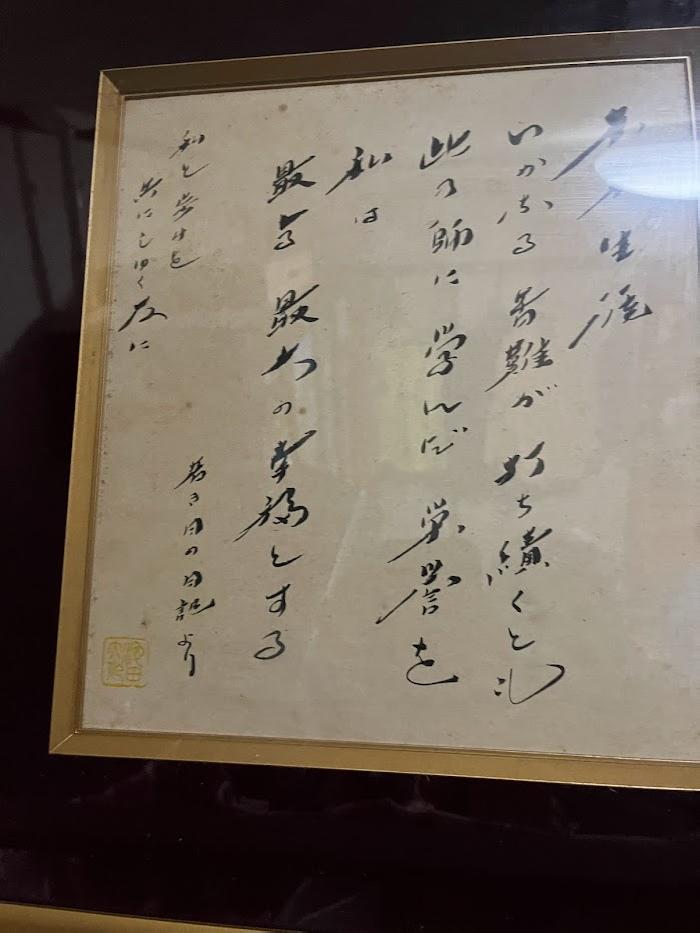 生涯
いかなる 苦難が 打ち續くとも
此の師に 学んだ 栄誉を
私は
最高 最大の 幸福とする
私と歩みを
共にしゆく友に
若き日の日記より